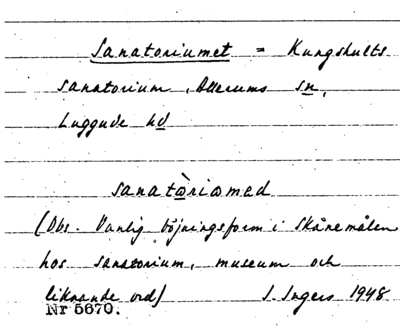 Sanatoriumet = Kungshults
sanatorium, Allerums sn,
Luggude hd
sanatòriamed
(Obs. Vanlig böjningsform i Skånemålen
hos sanatorium, museum och
liknande ord) I. Ingers 1948
Nr 5670.